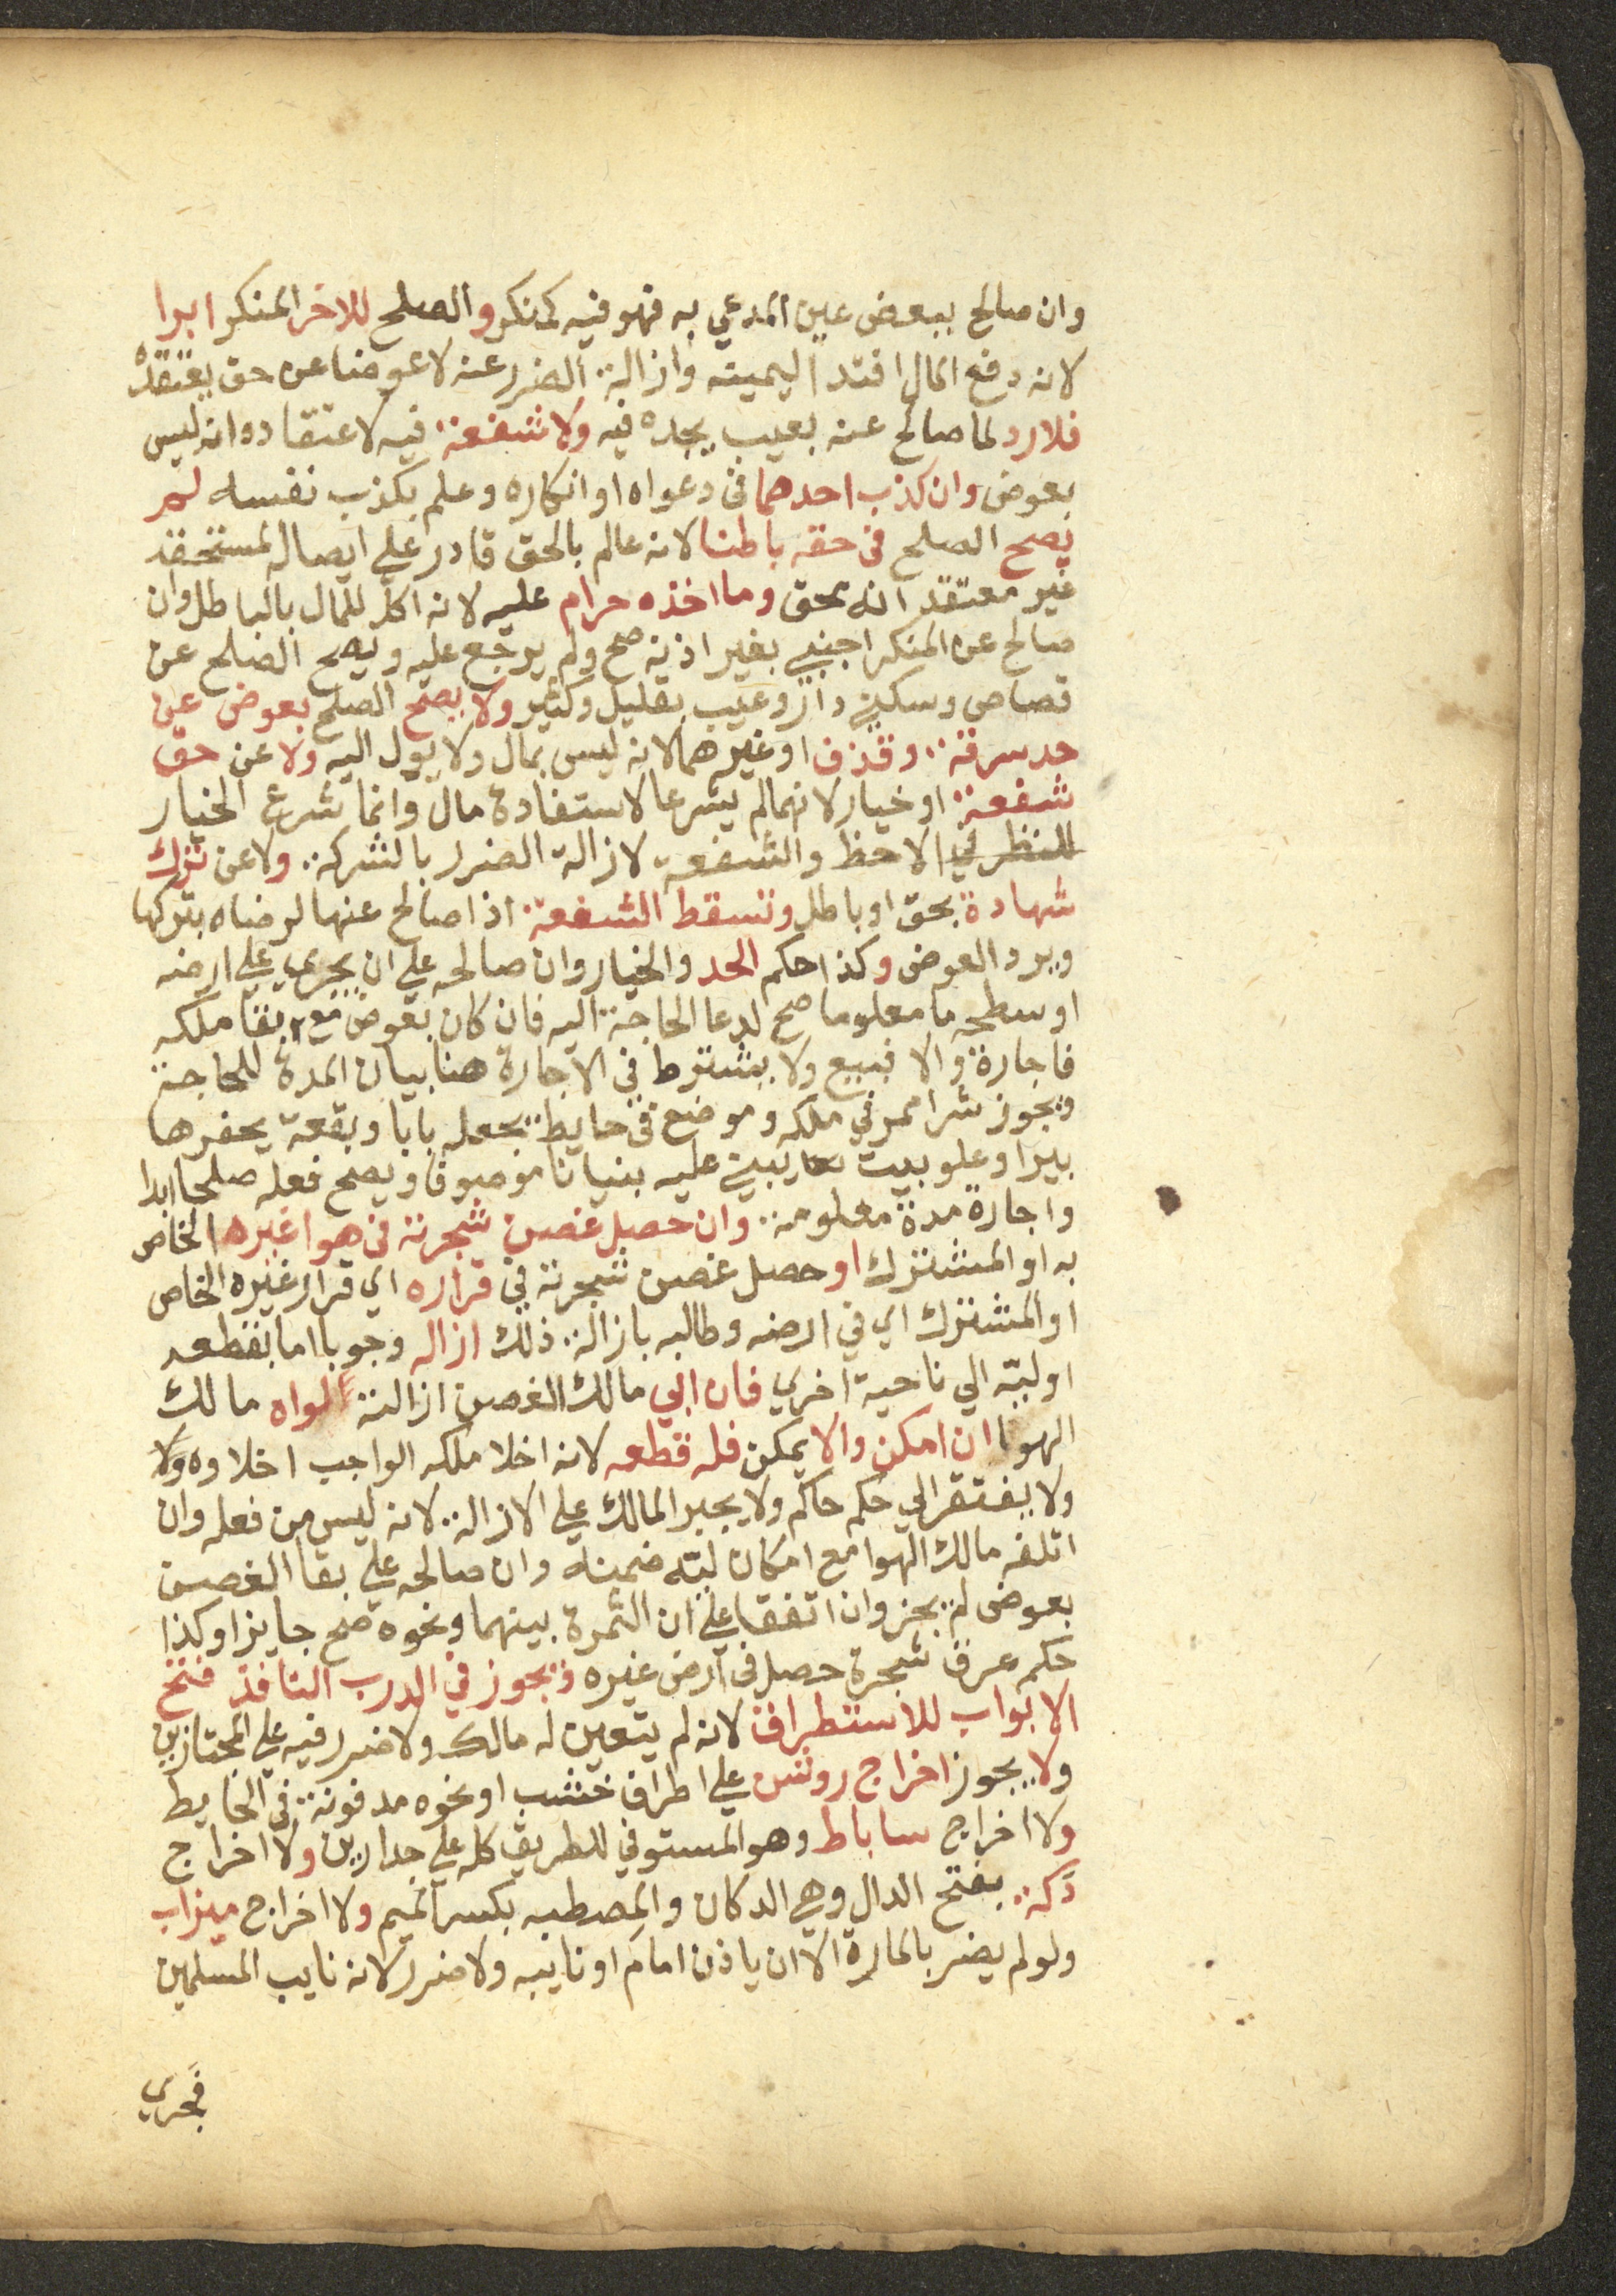 وان صالح ببعض عين المدعي به فهو فيه كمنكر والصلح للاخر المنكر ابرا
لانه دفع المال افتدا ليمينه وازالة الضرر عنه لا عوضا عن حق يعتقده
فلا رد لما صالح عنه بعيب يجده فيه ولا شفعة فيه لاعتقاده انه ليس
بعوض وان كذب احدهما في دعواه او انكاره وعلم بكذب نفسه لم
يصح الصلح في حقه باطنا لانه عالم بالحق قادر علي ايصاله لمستحقه
غير معتقد انه محق وما اخذه حرام عليه لانه اكل للمال بالباطل وان
صالح عن المنكر اجنبي بغير اذنه صح ولم يرجع عليه ويصح الصلح عن
قصاص وسكني دار وعيب بقليل وكثير ولا يصح الصلح بعوض عن
حد سرقة وقذف او غيرهما لانه ليس بمال ولا يول اليه ولا عن حق
شفعة او خيار لانهما لم يشرعا لاستفادة مال وانما شرع الخيار
للنظر في الاحظ والشفعة لازالة الضرر بالشركة ولا عن ترك
شهادة بحق او باطل وتسقط الشفعة اذا صالح عنها لرضاه بتركها
ويرد العوض وكذا حكم الحد والخيار وان صالحه علي ان يجري علي ارضه
او سطحه ما معلوما صح لدعا الحاجة اليه فان كان بعوض مع بقا ملكه
فاجارة والا فبيع ولا يشترط في الاجارة هنا بيان المدة للحاجة
ويجوز شرا ممر في ملكه وموضع في حايط يجعله بابا وبقعة يحفرها
بيرا وعلو بيت يبني عليه بنيانا موصوفا ويصح فعله صلحا ابدا
واجارة مدة معلومة وان حصل غصن شجرته في هوا غيره الخاص
به او المشترك او حصل غصن شجرته في قراره اي قرار غيره الخاص
او المشترك اي في ارضه وطالبه بازالة ذلك ازاله وجوبا اما بقطعه
او ليّه الي ناحية اخري فان ابي مالك الغصن ازالته لواه مالك
الهوا ان امكن والا يمكن فله قطعه لانه اخلا ملكه الواجب اخلاوه ولا
ولا يفتقر الي حكم حاكم ولا يجبر المالك علي الازالة لانه ليس من فعله وان
اتلفه مالك الهوا مع امكان ليّه ضمنه وان صالحه علي بقا الغصن
بعوض لم يجز وان اتفقا علي ان الثمرة بينهما ونحوه صح جايزا وكذا
حكم عرق شجرة حصل في ارض غيره ويجوز في الدرب النافذ فتح
الابواب للاستطراق لانه لم يتعين له مالك ولا ضرر فيه علي المجتازين
ولا يجوز اخراج روشن علي اطراف خشب او نحوه مدفونة في الحايط
ولا اخراج ساباط وهو المستوفي للطريق كله علي جدارين ولا اخراج
دَكة بفتح الدال وهي الدكان والمصطبه بكسر الميم ولا اخراج ميزاب
ولو لم يضر بالمارة الا ان ياذن امام او نايبه ولا ضرر لانه نايب المسلمين
فجري